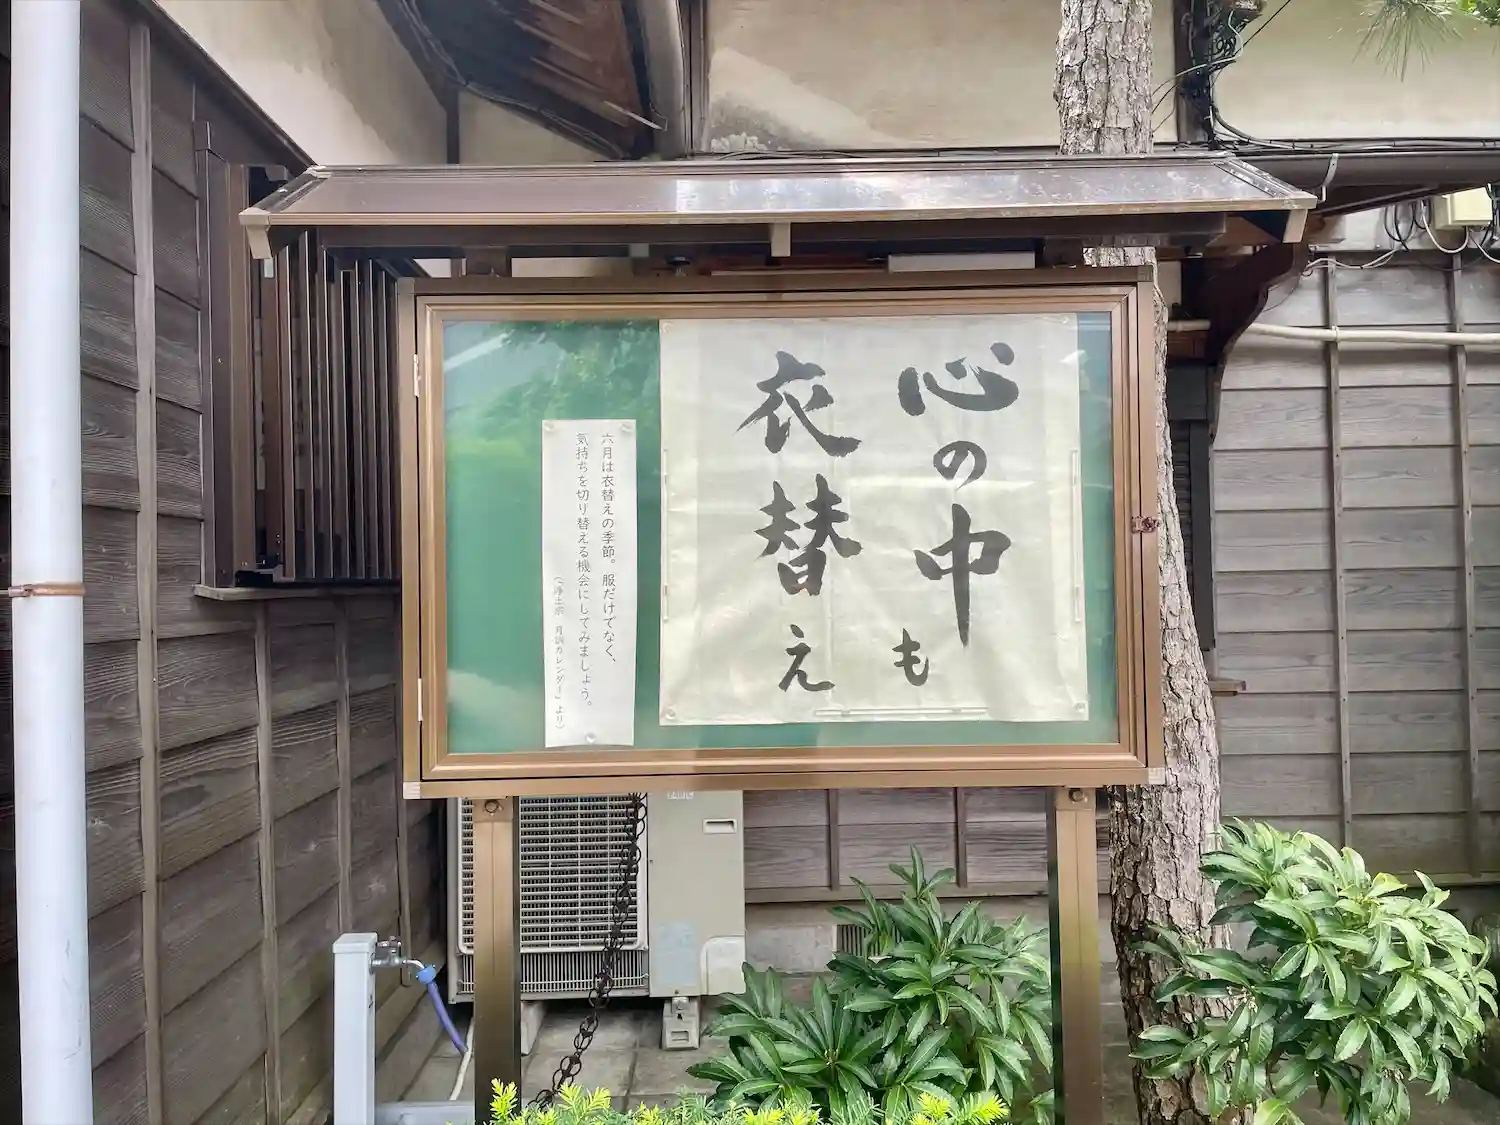 心の中も
衣替え
六月は衣替えの季節。服だけでなく、
気持ちを切り替える機会にしてみましょう。
(『浄土宗 月訓カレンダー』より)